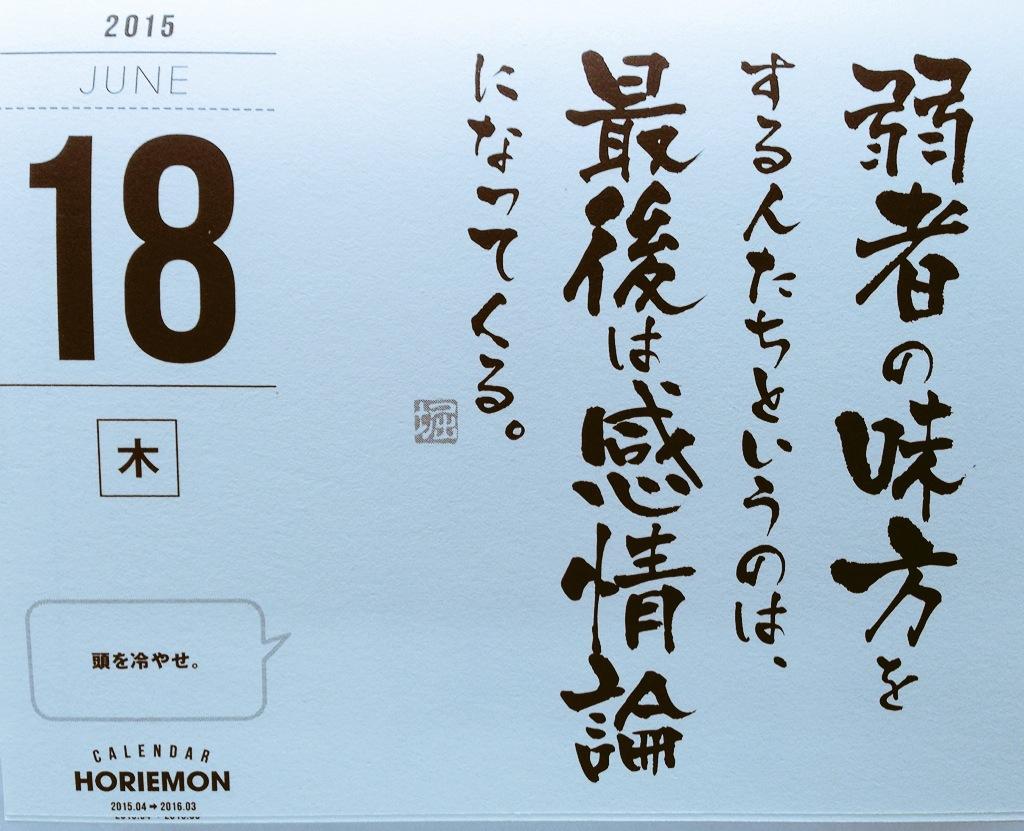 2015
JUNE
18
木
弱者の味方を
するんたちというのは、
最後は感情論
になってくる。
堀
頭を冷やせ。
CALENDAR
HORIEMON
2015.04➔2016.03